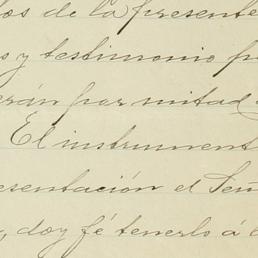 los de la presente
s y testimonio p
erán por mitad
El instrument
esentación el Señ
, doy fé tenerlo á